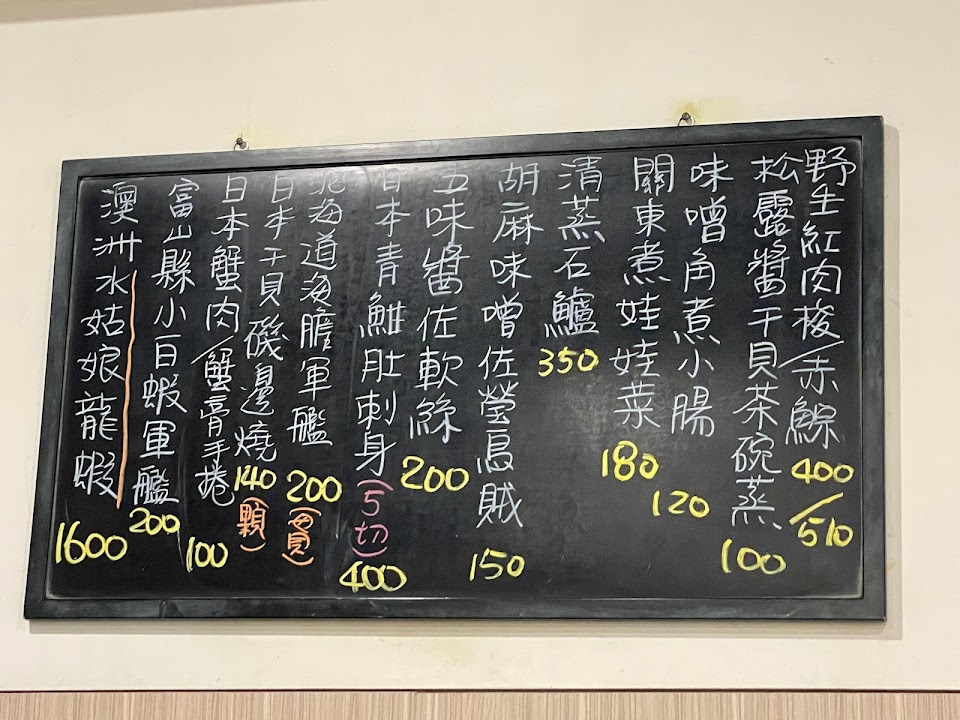 野生紅肉梭/赤鯮 400/510
松露醬干貝茶碗蒸 100
味噌角煮小腸 120
關東煮娃娃菜 180
清蒸石鱸 350
胡麻味噌佐螢烏賊 150
五味醬佐軟絲 200
日本青魽肚刺身(5切) 400
北海道海膽軍艦 200(貫)
日本干貝磯邊燒 140(顆)
日本蟹肉/蟹膏手捲 100
富山縣小白蝦軍艦 200
澳洲水姑娘龍蝦 1600